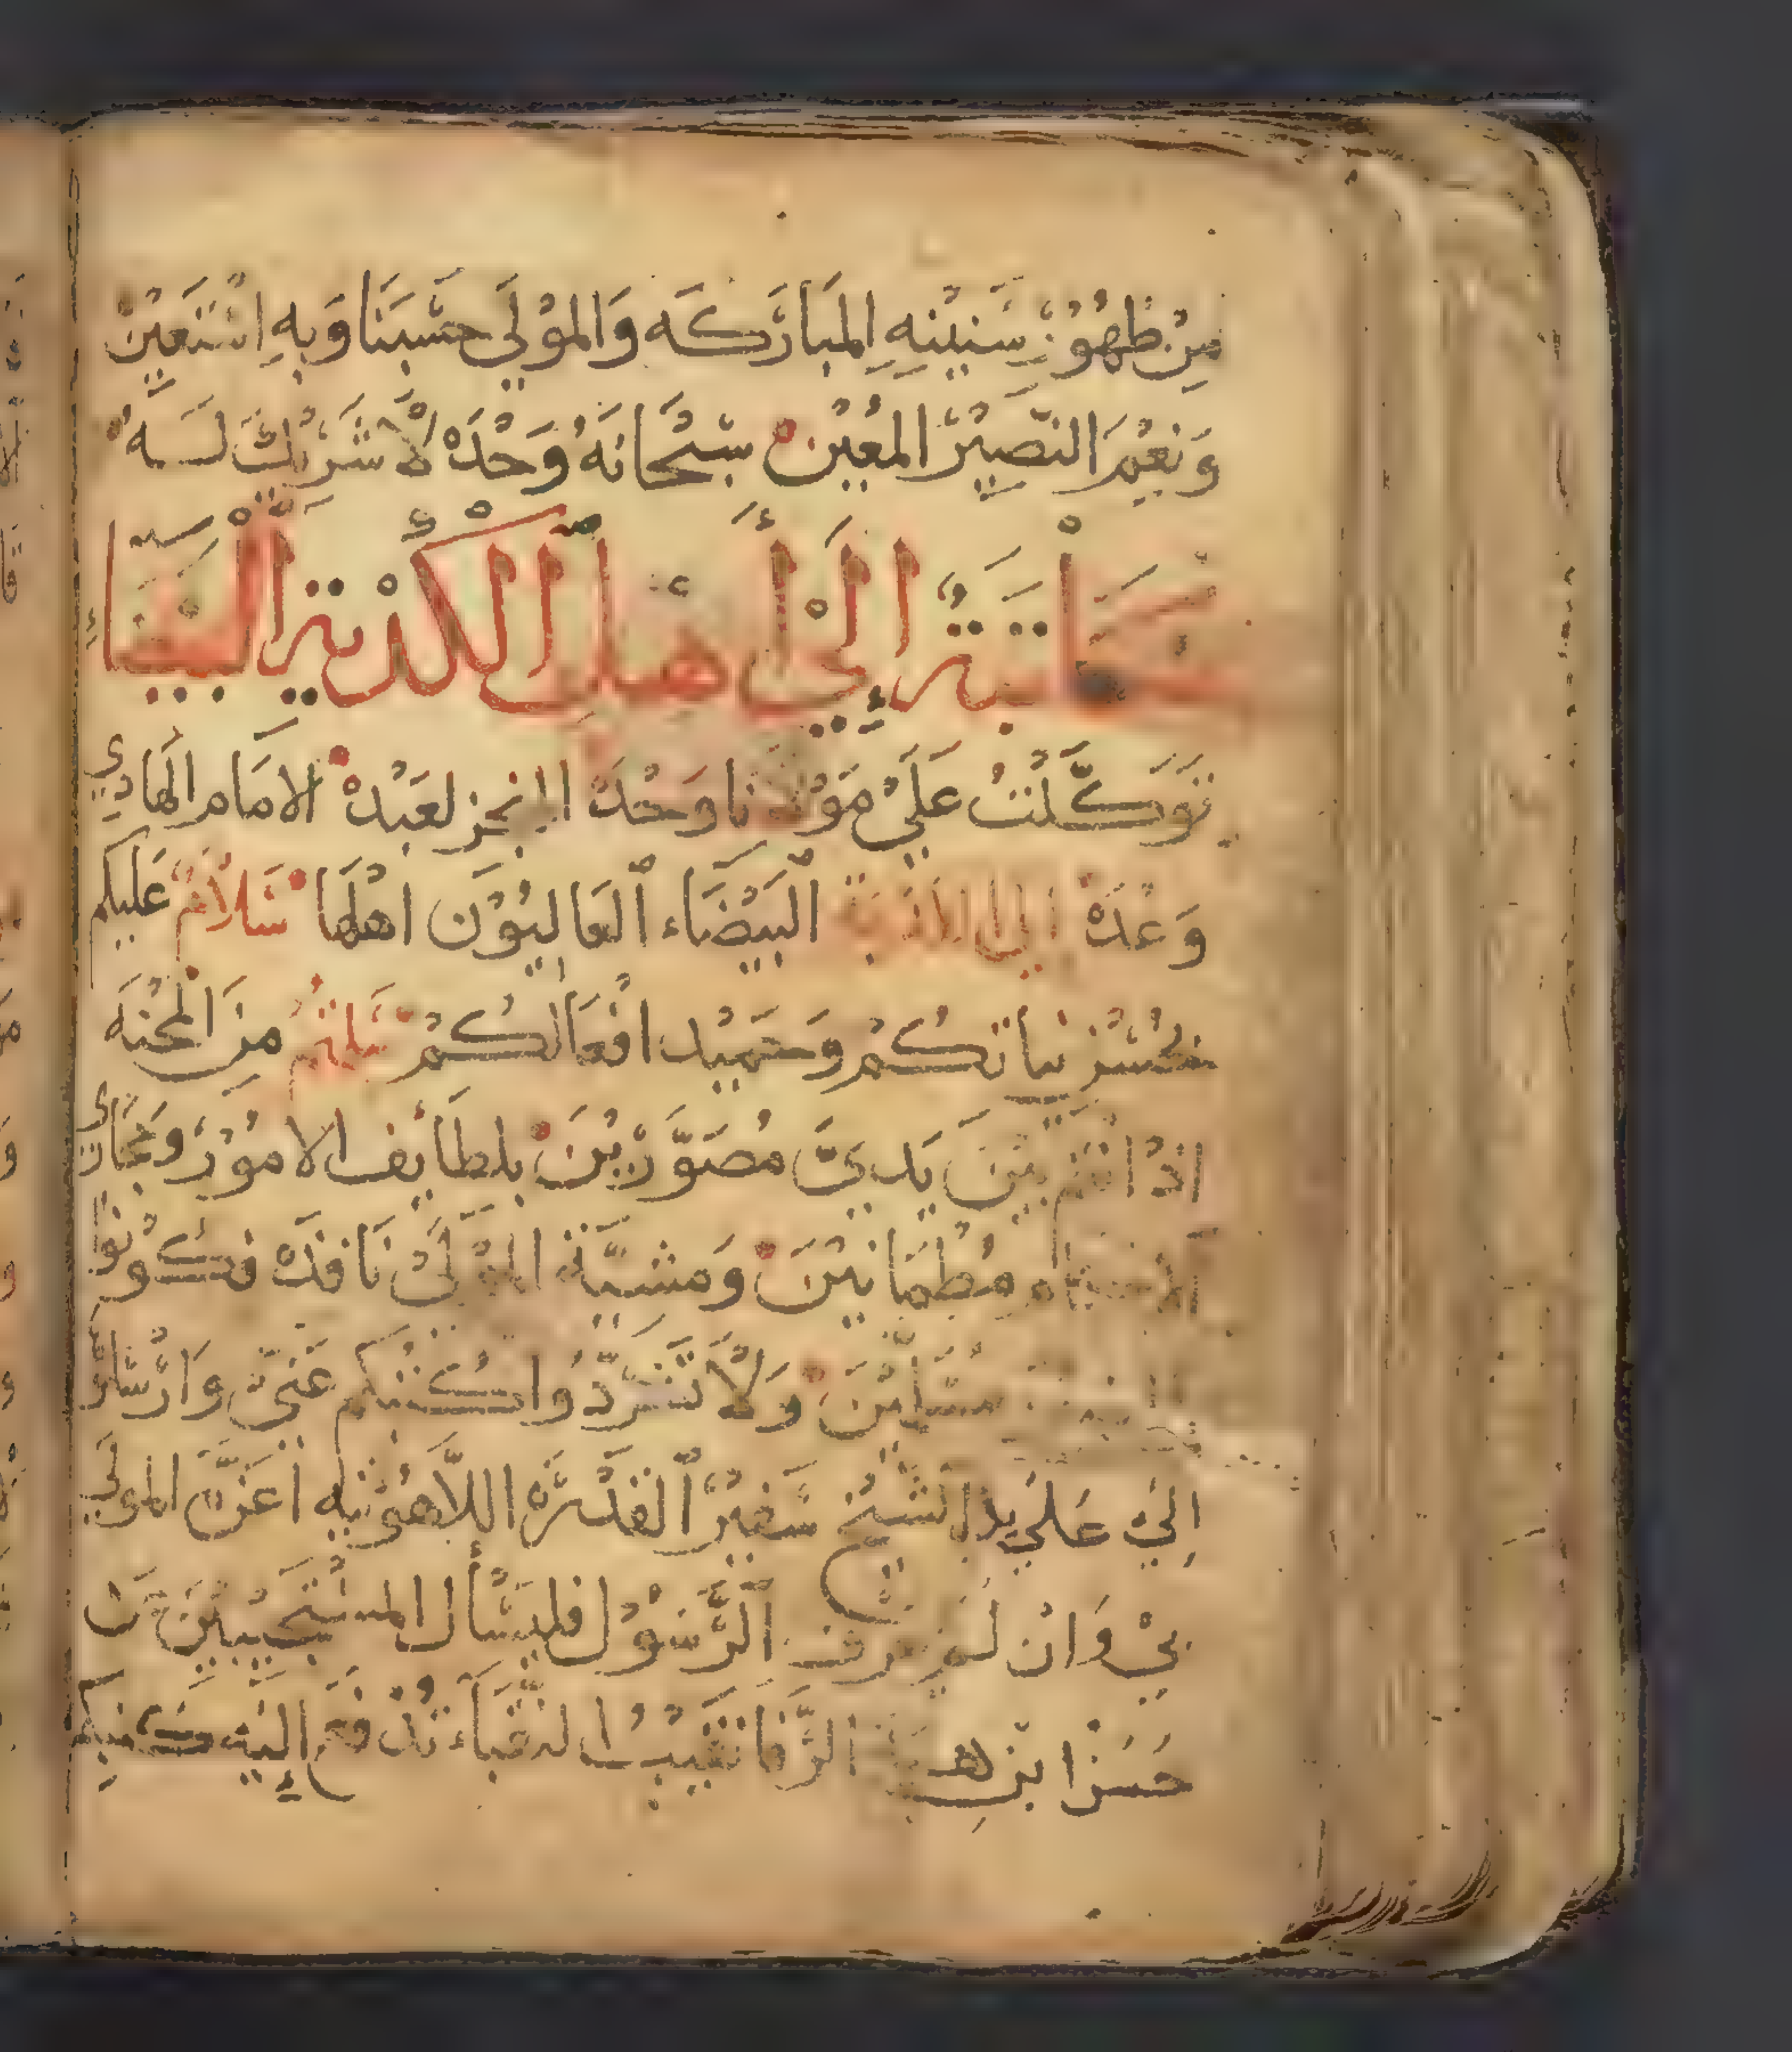 مِنْ ظُهُوْرِ سَنِيْنِهِ المُبَارَكَه وَالموْلَى حَسْبَنَا وَبِهِ اسْتَعِيْنْ
وَنِعْمَ النَّصِيْرَ المُعِيْنْ سُبْحَانَهُ وَحْدَهْ لَا شَرِيْكَ لَــهُ
مُكَاتَبَةٌ إِلَى أَهْلِ الْكُدْيَةِ الْبَيْضَاءِ
تَوَكَّلْتُ عَلَىْ مَوْلَانَا وَحْدَهْ المنجز لعَبْدهْ الامَام الهَادِي
وَعْدَهْ الى الكدية الْبَيْضَاء الْعَاليُوْن اهلهَا سَلَامٌ عَليكم
بحُسْن نياتكُمْ وَحَمِيْد افْعَالكُمْ سَلمتُم منَ المحْنَه
اذْ انتم بَيْنَ يَديَّ مُصَوَّرْيْنَ بلطَايف الامُوْر وَمجَارى
مُطْمَانيْنَ وَمشيَّة الموْلَىْ نَافذَهْ فكُوْنُوا
مسَلّميْنَ وَلَا تَتَرَدَّدُوا كُتبكم عَنىّ وَارْسَال
اِلَيْ عَلَي يد الشَّيْخ سَفيْر الْقدْرَة اللَّاهُوْتيه اعَزَّ المولَى
بِيْ وَانْ لَمْ يعرف الرَّسُوْل فليَسْأل المسْتَجيْبيْنَ عَنْ
حَسَنْ ابْن هبة الرَّفَا نَقيْبُ النقبَاء تُدْفَعْ اِلَيْه كتبكم